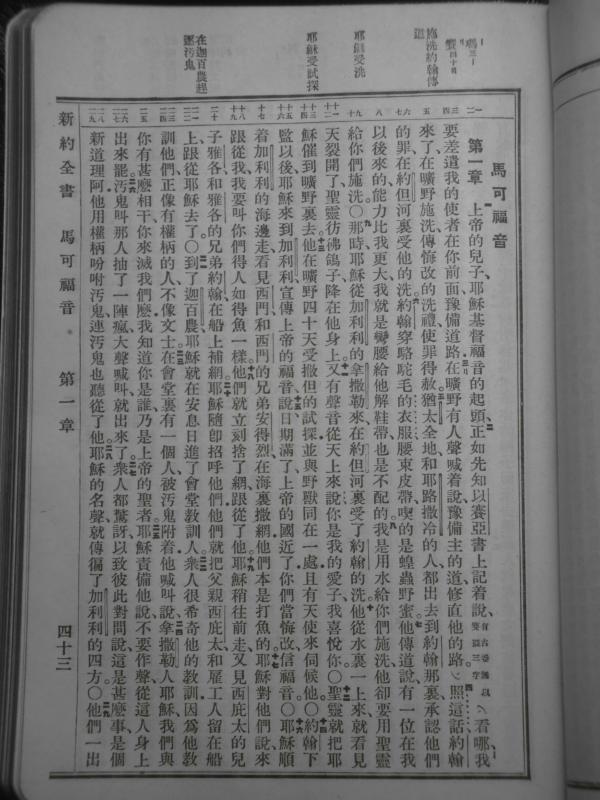 馬可福音
第一章 上帝的兒子、耶穌基督福音的起頭、正如先知以賽亞書上記着說、有古卷無以賽亞三字看哪、我
要差遣我的使者在你前面、豫備道路、在曠野有人聲喊着說、豫備主的道、修直他的路、照這話、約翰
來了、在曠野施洗、傳悔改的洗禮、使罪得赦、猶太全地、和耶路撒冷的人、都出去到約翰那裏、承認他們
的罪、在約但河裏受他的洗、約翰穿駱駝毛的衣服、腰束皮帶、喫的是蝗蟲野蜜、他傳道說、有一位在我
以後來的、能力比我更大、我就是彎腰給他解鞋帶、也是不配的、我是用水給你們施洗、他卻要用聖靈
給你們施洗○那時耶穌從加利利的拿撒勒來、在約但河裏受了約翰的洗、他從水裏一上來、就看見
天裂開了、聖靈彷彿鴿子、降在他身上、又有聲音從天上來說、你是我的愛子、我喜悅你○聖靈就把耶
穌催到曠野裏去、他在曠野四十天、受撒但的試探、並與野獸同在一處、且有天使來伺候他○約翰下
監以後、耶穌來到加利利、宣傳上帝的福音、說、日期滿了、上帝的國近了、你們當悔改、信福音○耶穌順
着加利利的海邊走、看見西門、和西門的兄弟安得烈、在海裏撒網、他們本是打魚的、耶穌對他們說、來
跟從我、我要叫你們得人如得魚一樣、他們就立刻捨了網、跟從了他、耶穌稍往前走、又見西庇太的兒
子雅各、和雅各的兄弟約翰、在船上補網、耶穌隨卽招呼他們、他們就把父親西庇太、和雇工人留在船
上、跟從耶穌去了○到了迦百農、耶穌就在安息日進了會堂教訓人、衆人很希奇他的教訓、因爲他教
訓他們、正像有權柄的人、不像文士、在會堂裏有一個人、被汚鬼附着、他喊叫說、拿撒勒人耶穌、我們與
你有甚麼相干、你來滅我們麼、我知道你是誰、乃是上帝的聖者、耶穌責備他說、不要作聲、從這人身上
出來罷、汚鬼叫那人抽了一陣瘋、大聲喊叫、就出來了、衆人都驚訝、以致彼此對問說、這是甚麼事、是個
新道理阿、他用權柄吩咐汚鬼、連汚鬼也聽從了他、耶穌的名聲、就傳徧了加利利的四方○他們一出
新約全書 馬可福音 第一章 四十三
施洗約翰傳道
耶穌受洗
耶穌受試探
在迦百農趕逐汚鬼